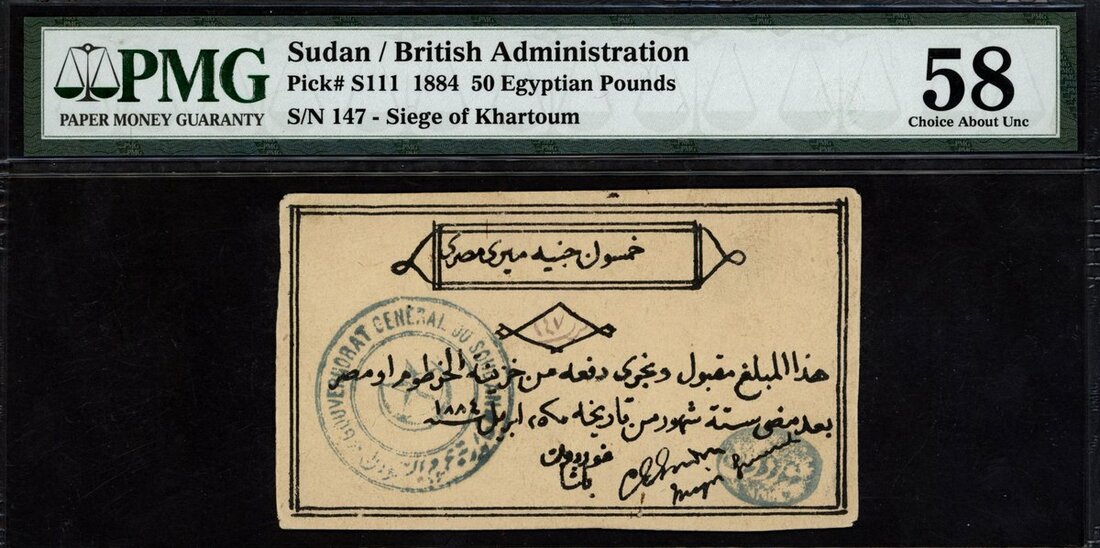 PMG
PAPER MONEY GUARANTY
Sudan / British Administration
Pick# S111 1884 50 Egyptian Pounds
S/N 147 - Siege of Khartoum
58
Choice About Unc
خمسون جنيه ميرى مصرى
١٤٧
هذا المبلغ مقبول ونجرى دفعه من خزينة الخرطوم او مصر
بعد مضى ستة شهور من تاريخه ٢٥ ابريل سنة ١٨٨٤
غوردون
باشا
GOUVERNORAT GENÉRAL DU SOUDAN